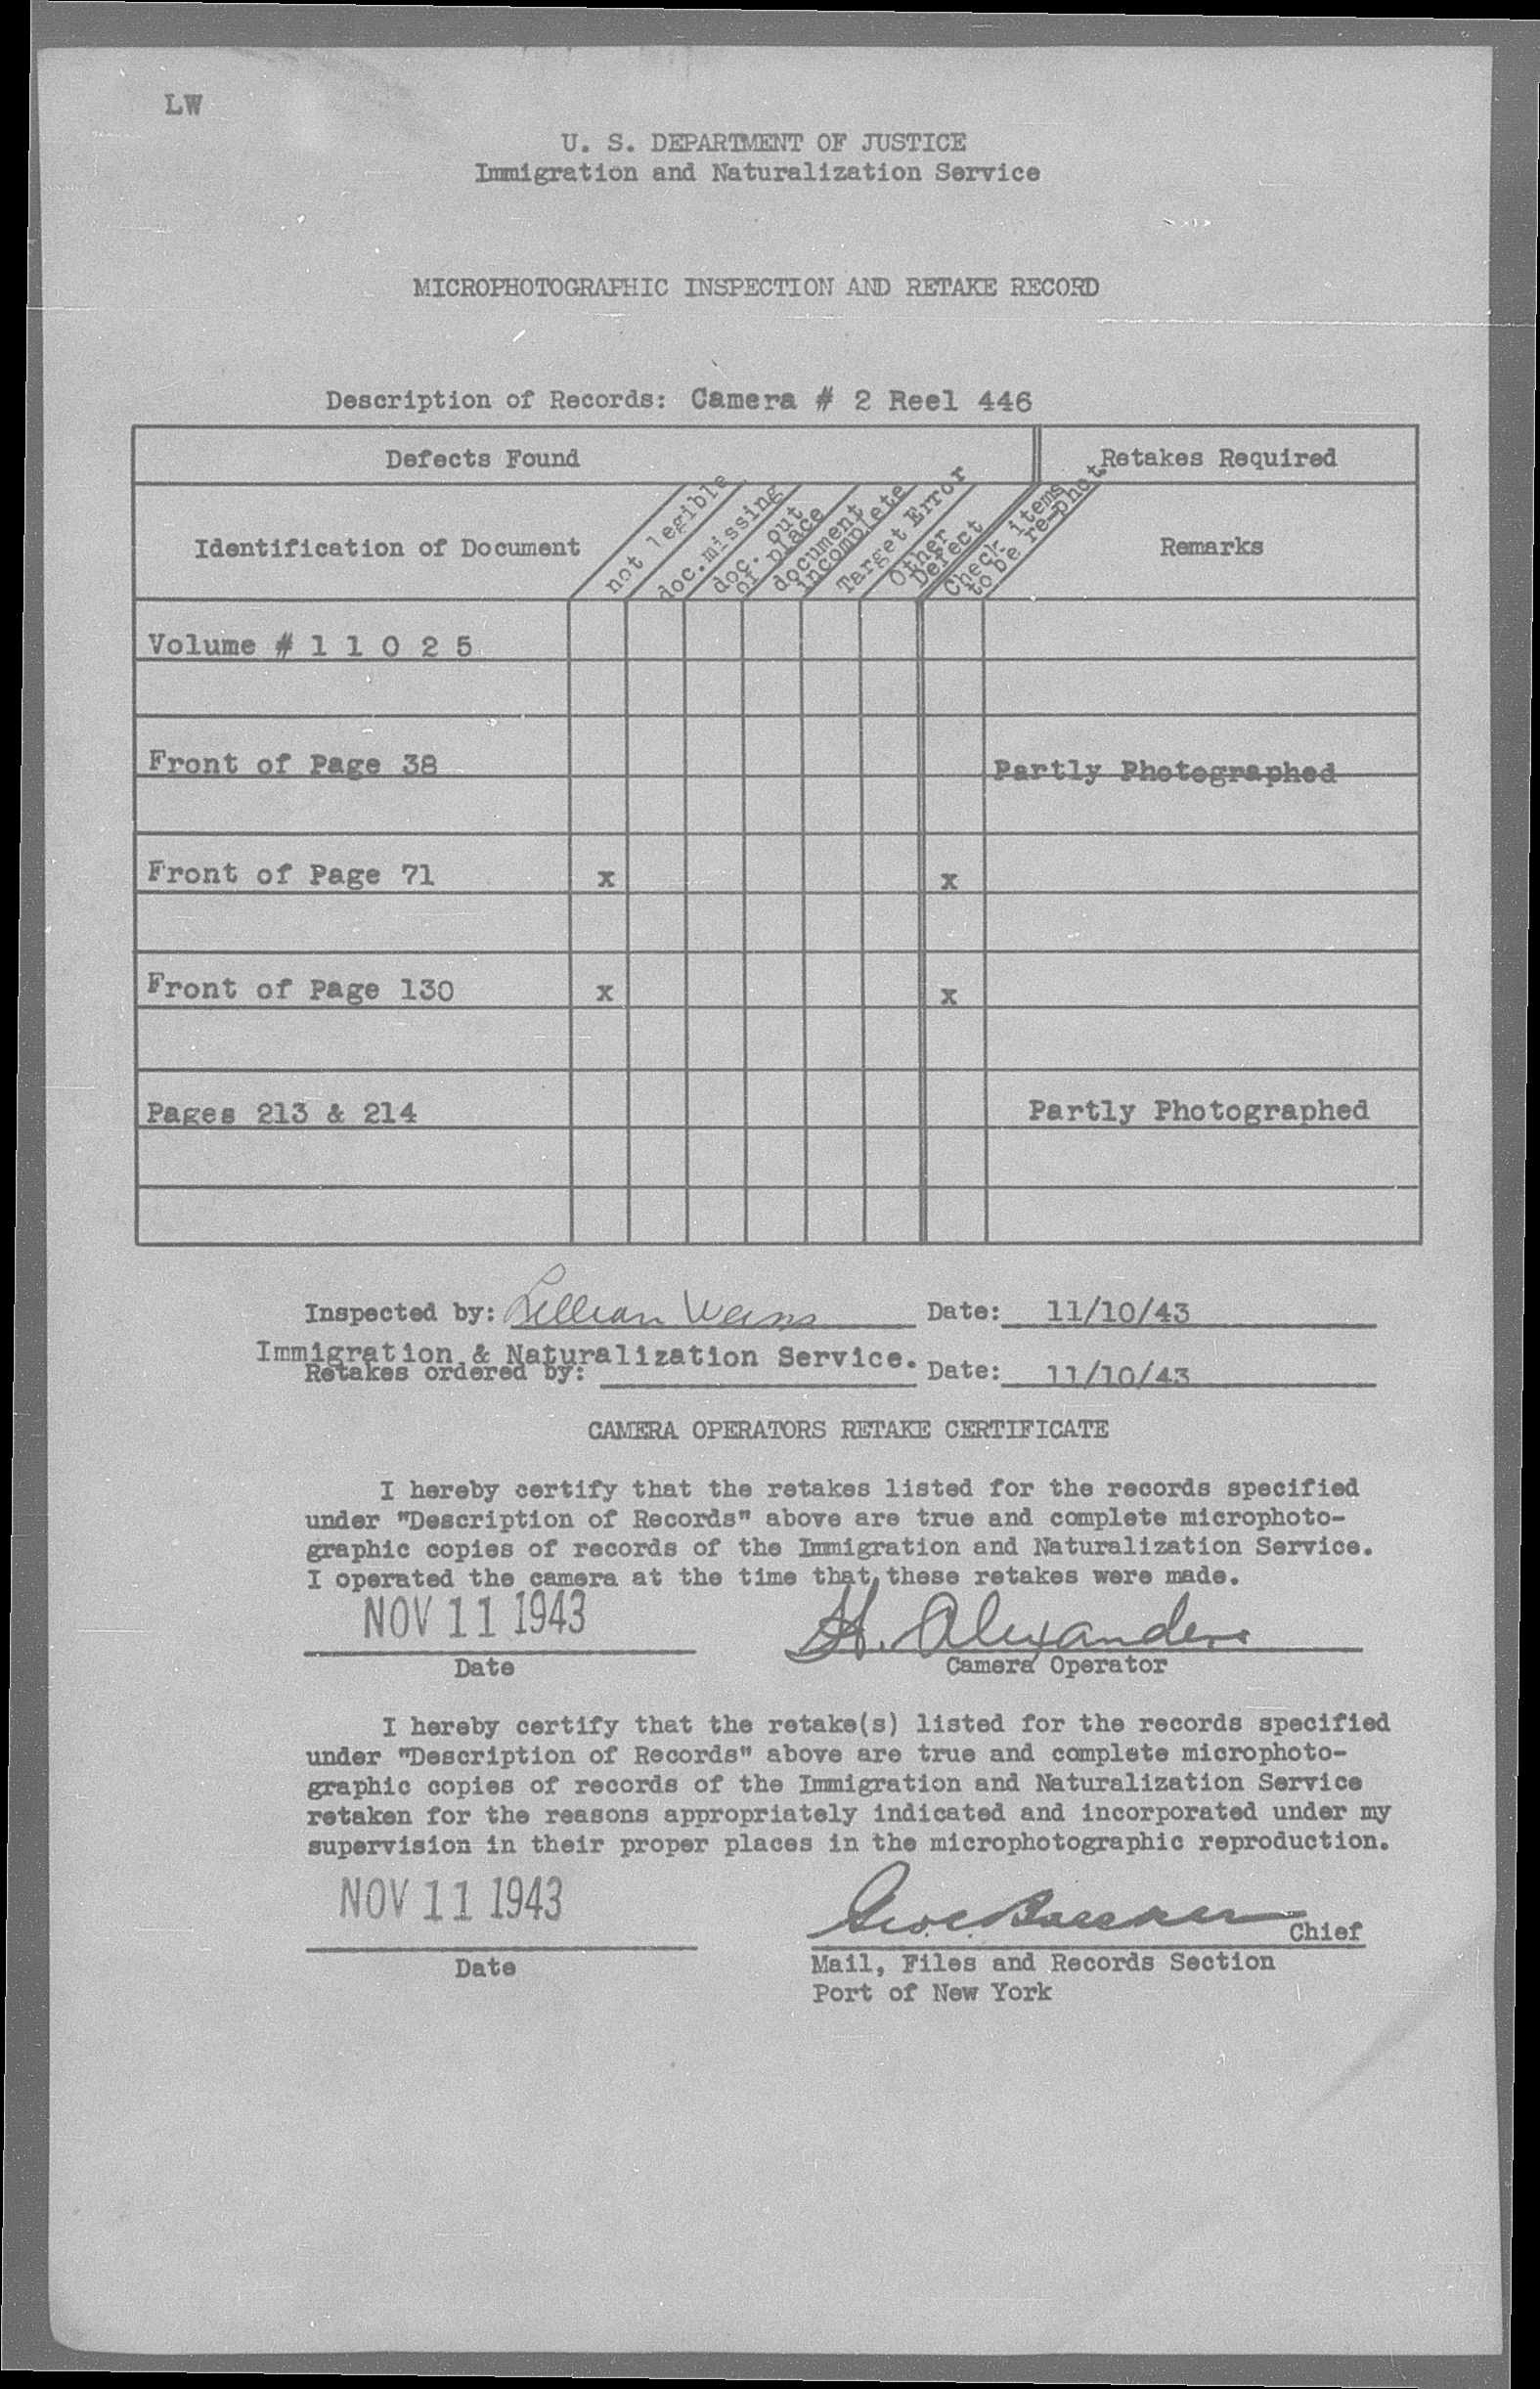 LW
U. S. DEPARTMENT OF JUSTICE
Immigration and Naturalization Service
MICROPHOTOGRAPHIC INSPECTION AND RETAKE RECORD
Description of Records: Camera # 2 Reel 446
Defects Found
Retakes Required
Identification of Document
not legible
doc.missing
doc. out
of place
document
incomplete
Target Error
Other
Defect
Check items
to be re-phot.
Remarks
Volume # 1 1 0 2 5
Front of Page 38 Partly Photographed
Front of Page 71 x x
Front of Page 130 x x
Pages 213 & 214 Partly Photographed
Inspected by: Lillian Weiss Date: 11/10/43
Immigration & Naturalization Service.
Retakes ordered by: Date: 11/10/43
CAMERA OPERATORS RETAKE CERTIFICATE
I hereby certify that the retakes listed for the records specified
under "Description of Records" above are true and complete microphoto-
graphic copies of records of the Immigration and Naturalization Service.
I operated the camera at the time that these retakes were made.
NOV 11 1943 H. Alexander
Date Camera Operator
I hereby certify that the retake(s) listed for the records specified
under "Description of Records" above are true and complete microphoto-
graphic copies of records of the Immigration and Naturalization Service
retaken for the reasons appropriately indicated and incorporated under my
supervision in their proper places in the microphotographic reproduction.
NOV 11 1943
Chief
Date
Mail, Files and Records Section
Port of New York